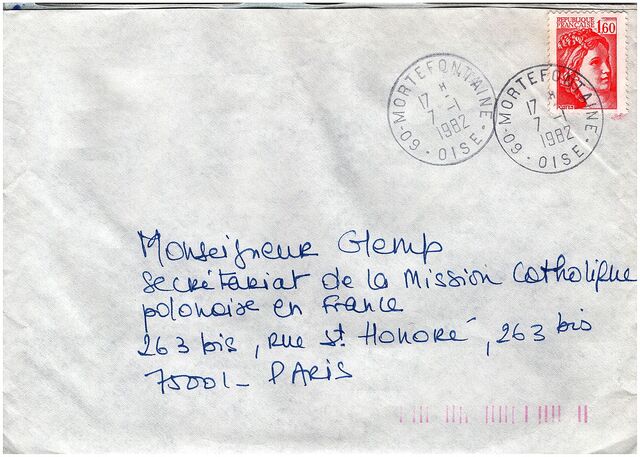 REPUBLIQUE
FRANÇAISE 1,60
60-MORTEFONTAINE
17 H
7 -1
1982
· OISE ·
60-MORTEFONTAINE
17 H
7 -1
1982
· OISE ·
Monseigneur Glemp
Secrétariat de la Mission Catholique
polonaise en France
263 bis, rue St Honoré, 263 bis
75001 - PARIS